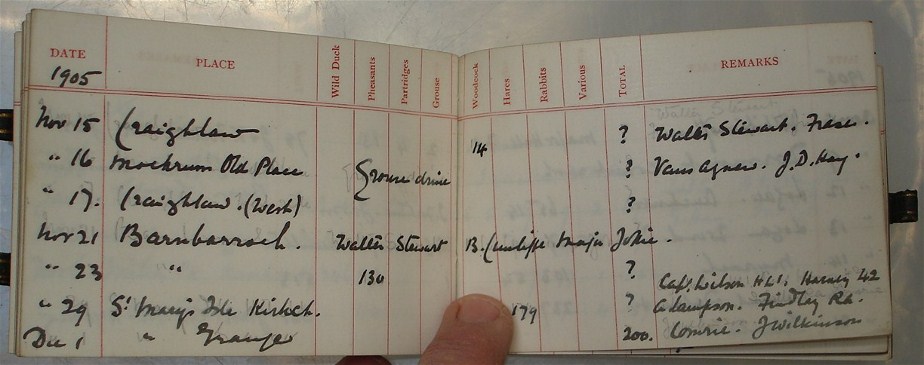 DATE PLACE Wild Duck Pheasants Partridges Grouse Woodcock Hares Rabbits Various TOTAL REMARKS
1905
Nov 15 Craighlaw 14 ? Walter Stewart. Fraser.
" 16 Mochrum Old Place Grouse drive ? Vans Agnew. J.D. Hay.
" 17. Craighlaw. (West) ?
Nov 21 Barnbarroch. Walter Stewart B. Cunliffe Major Jokie.
" 23 " 130 ? Capt. Wilson H.L.I. Harvey 42
" 29 St Mary's Isle Kirkcb. 179 ? Adampson. Findlay RA.
Dec 1 " Grange 200. Comrie. J Wilkinson